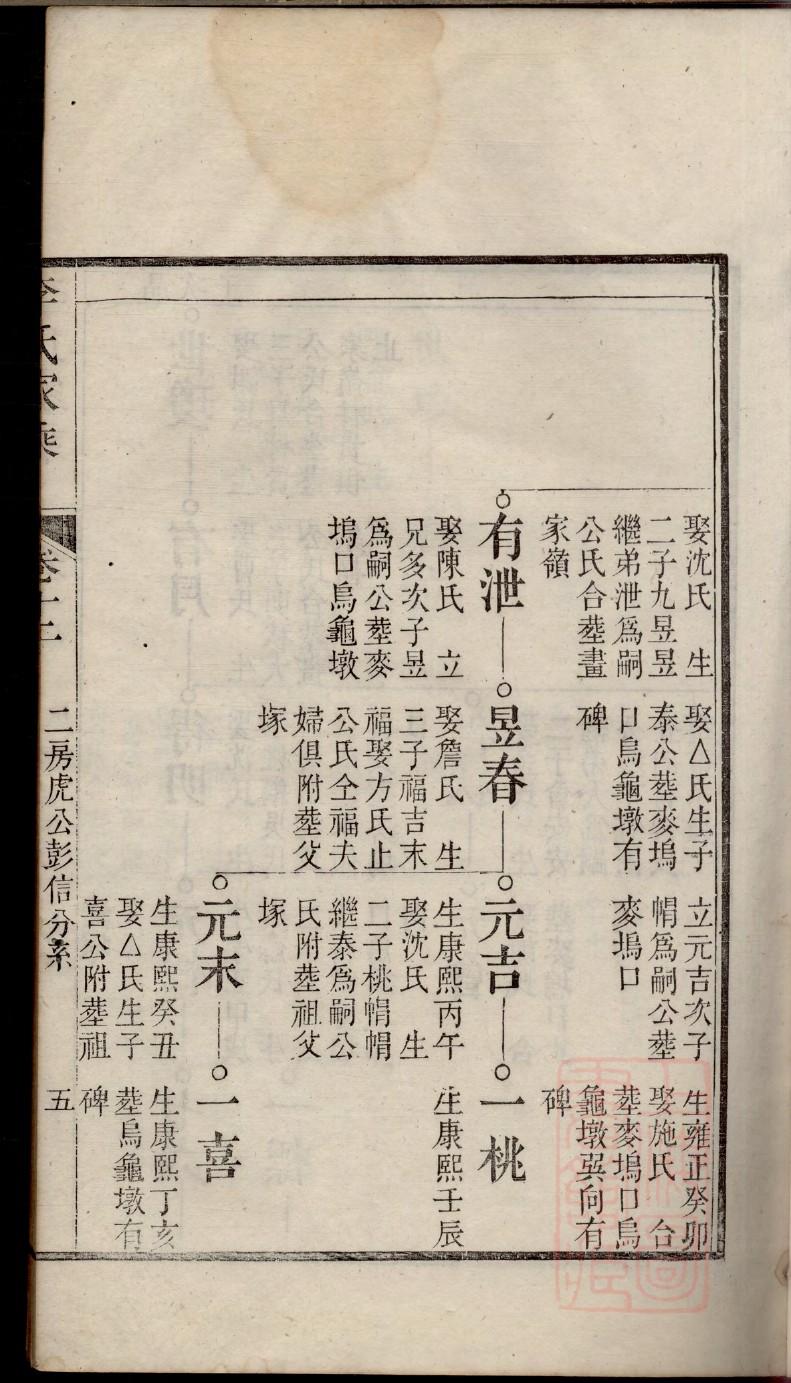 娶沈氏　生
二子九昱昱
繼弟泄爲嗣
公氏合塟畫
家嶺
有泄
娶陳氏　立
兄多次子昱
爲嗣公塟麥
塢口烏龜墩
娶△氏生子
泰公塟麥塢
口烏龜墩有
碑
昱春
娶詹氏　生
三子福吉末
福娶方氏止
公氏仝福夫
婦俱附塟父
塚
立元吉次子
帽爲嗣公塟
麥塢口
元吉
生康熙丙午
娶沈氏　生
二子桃帽帽
繼泰爲嗣公
氏附塟祖父
塚
元末
生康熙癸丑
娶△氏生子
喜公附塟祖
生雍正癸卯
娶施氏　合
塟麥塢口烏
龜墩巽向有
碑
一桃
生康熙壬辰
一喜
生康熙丁亥
塟烏龜墩有
碑
李氏家乘
卷十二
二房虎公彭信分系
五